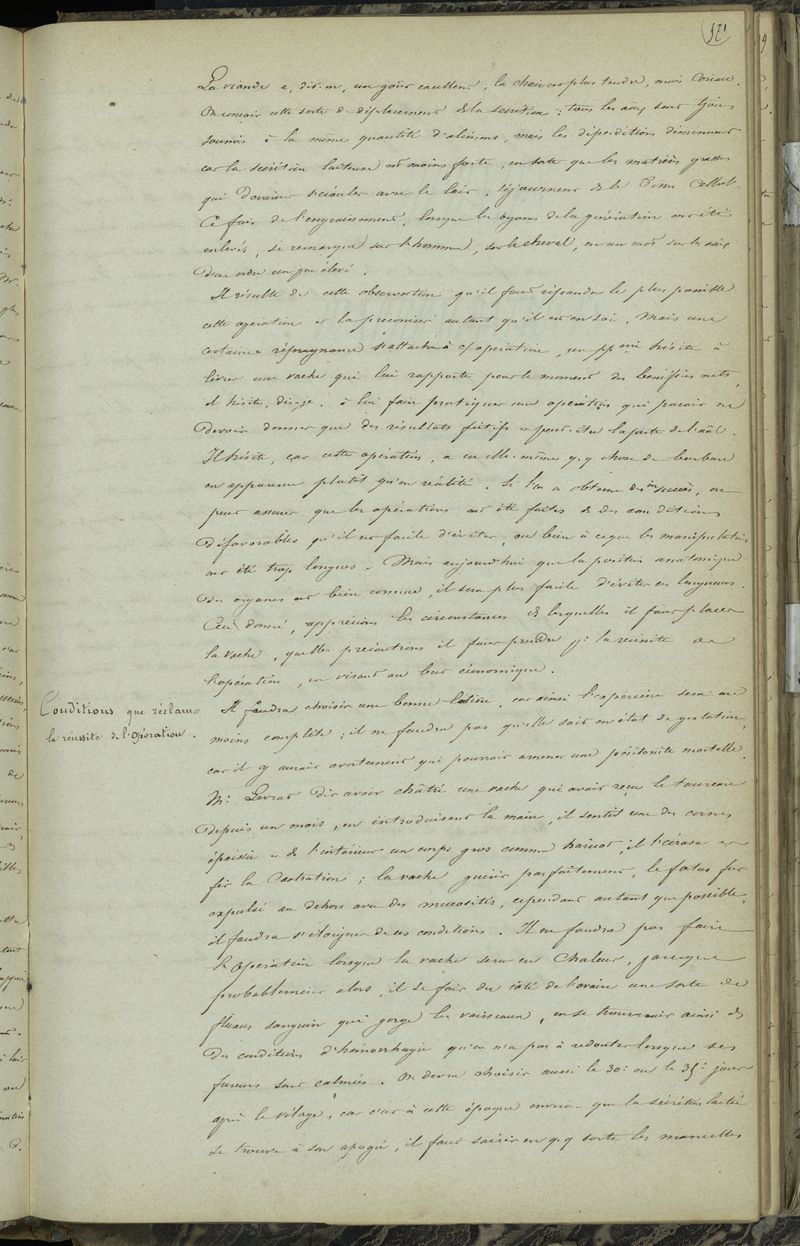 321
La viande a, dit-on, un goût excellent, la chair est plus tendre, mais
On conçoit cette sorte de déplacement de la secrétion ; tous les
soumis à la même quantité d'aliment, mais les déperditions diminuent
car la secrétion laiteuse est moins forte, en sorte que les matières grasses
qui devaient s'écouler avec le lait, séjournent ds le
Ce fait de l'engraissement, lorsque les organes de la génération ont été
enlevés, se remarque sur l'homme, sur le cheval, en un mot sur les
d'un ordre un peu élevé.
Il résulte de cette observation qu'il faut répandre le plus possible
cette opération et la preconiser autant qu'il est en soi. Mais une
certaine répugnance s'attache à c/ opération, un pp aire hésite à
livrer une vache qui lui rapporte pour le moment des benifices nets,
il hésite, dis-je, à lui faire pratiquer une opération qui paraît ne
devoir donner que des résultats fictifs et peut-être la perte de l'anl.
Il hésite, car cette opération, a en elle-même q.q chose de barbare
en apparence plutôt qu'en réalité. Si l'on a obtenu des insuccès, on
peut assurer que les opérations ont été faites ds des conditions
défavorables qu'il est facile d'éviter, ou bien à ce que les manipulations
ont été trop longues. Mais aujourd'hui que la position anatomique
des organes est bien connue, il sera plus facile d'éviter ces longueurs.
Ceci donné, apprécions les circonstances ds lesquelles il faut placer
la vache, quelles précautions il faut prendre pr la réussite de
l'opération, en visant au but économique.
Conditions que réclame
la réussite de l'Opération.
Il faudra choisir une bonne laitière, car ainsi l'expérience sera au
moins complète ; il ne faudra pas qu'elle soit en état de gestation,
car il y aurait avortement qui pourrait amener une péritonite mortelle.
Mr. Levrat dit avoir châtré une vache qui avait reçu le taureau
depuis un mois, en introduisant la main, il sentit une des cornes
épaissie et ds l'intérieur un corps gros comme haricot, il l'écrasa et
fit la Castration ; la vache guérit parfaitement, le fœtus fut
expulsé au dehors avec des mucosités, cependant autant que possible,
il faudra s'éloigner de ces conditions. Il ne faudra pas faire
l'Opération lorsque la vache sera en Chaleur, parceque
probablement alors, il se fait du côté de l'ovaire une sorte de
fluxus sanguin qui gorge les vaisseaux, on se trouverait ainsi ds
des conditions d'hémorrhagie qu'on n'a pas à redouter lorsque ses
fureurs sont calmées. On devra choisir aussi le 30e ou le 35e jour
après le vêlage, car c'est à cette époque environ que la sécrétion lactée
se trouve à son apogée, il faut saisir en q.q sorte les mamelles